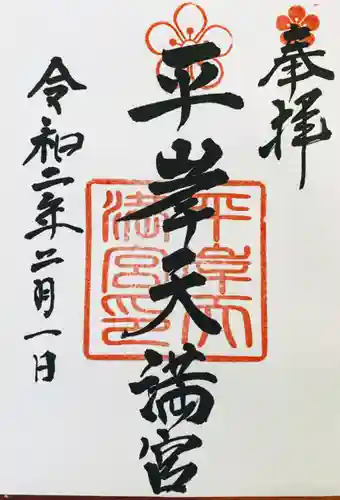 奉拝
平岸天満宮
平岸天
満宮印
令和二年二月一日